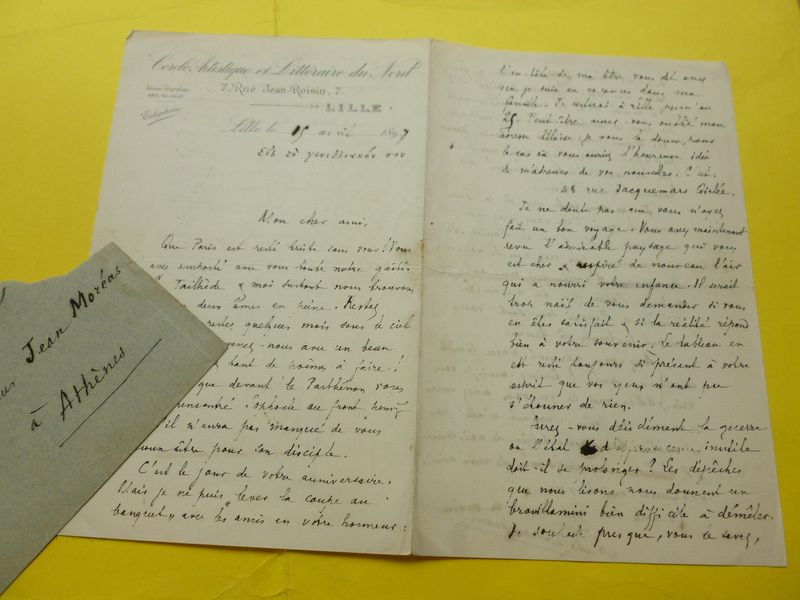 Cercle Artistique et Littéraire du Nord
7, Rue Jean-Roisin, 7
LILLE
Téléphone
Lille le 15 avril 1897
Εἰς τὸ γενεθλιακόν σου
Mon cher ami,
Que Paris est resté triste sans vous! Vous
avez emporté avec vous toute notre gaîté.
Tailhède & moi surtout nous trouvons
deux âmes en peine. Restez
restez quelques mois sous le ciel
nous avec un beau
tant de poèmes à faire!
que devant le Parthénon vous
rencontré Sophocle au front
il n'aura pas manqué de vous
pour son disciple.
C'est le jour de votre anniversaire.
Mais je ne puis "lever la coupe au
banquet" avec les amis en votre honneur:
l'en-tête de ma lettre vous dit assez
que je suis en vacances dans ma
famille. Je resterai à Lille jusqu'au
25. Peut-être aurez-vous oublié mon
adresse lilloise: je vous la donne, pour
le cas où vous auriez l'heureuse idée
de m'adresser de vos nouvelles. C'est:
48 rue Jacquemars Giélée.
Je ne doute pas que vous n'ayez
fait un bon voyage. Vous avez maintenant
revu l'admirable paysage qui vous
est cher & respiré de nouveau l'air
qui a nourri votre enfance. Il serait
trop naïf de vous demander si vous
en êtes satisfait & si la réalité répond
bien à votre souvenir. Le tableau en
est resté toujours si présent à votre
esprit que vos yeux n'ont pu
s'étonner de rien.
Aurez-vous décidément la guerre
ou l'état d'effervescence inutile
doit-il se prolonger? Les dépêches
que nous lisons nous donnent un
brouillamini bien difficile à démêler.
Je souhaite presque, vous le savez,
Jean Moréas
à Athènes